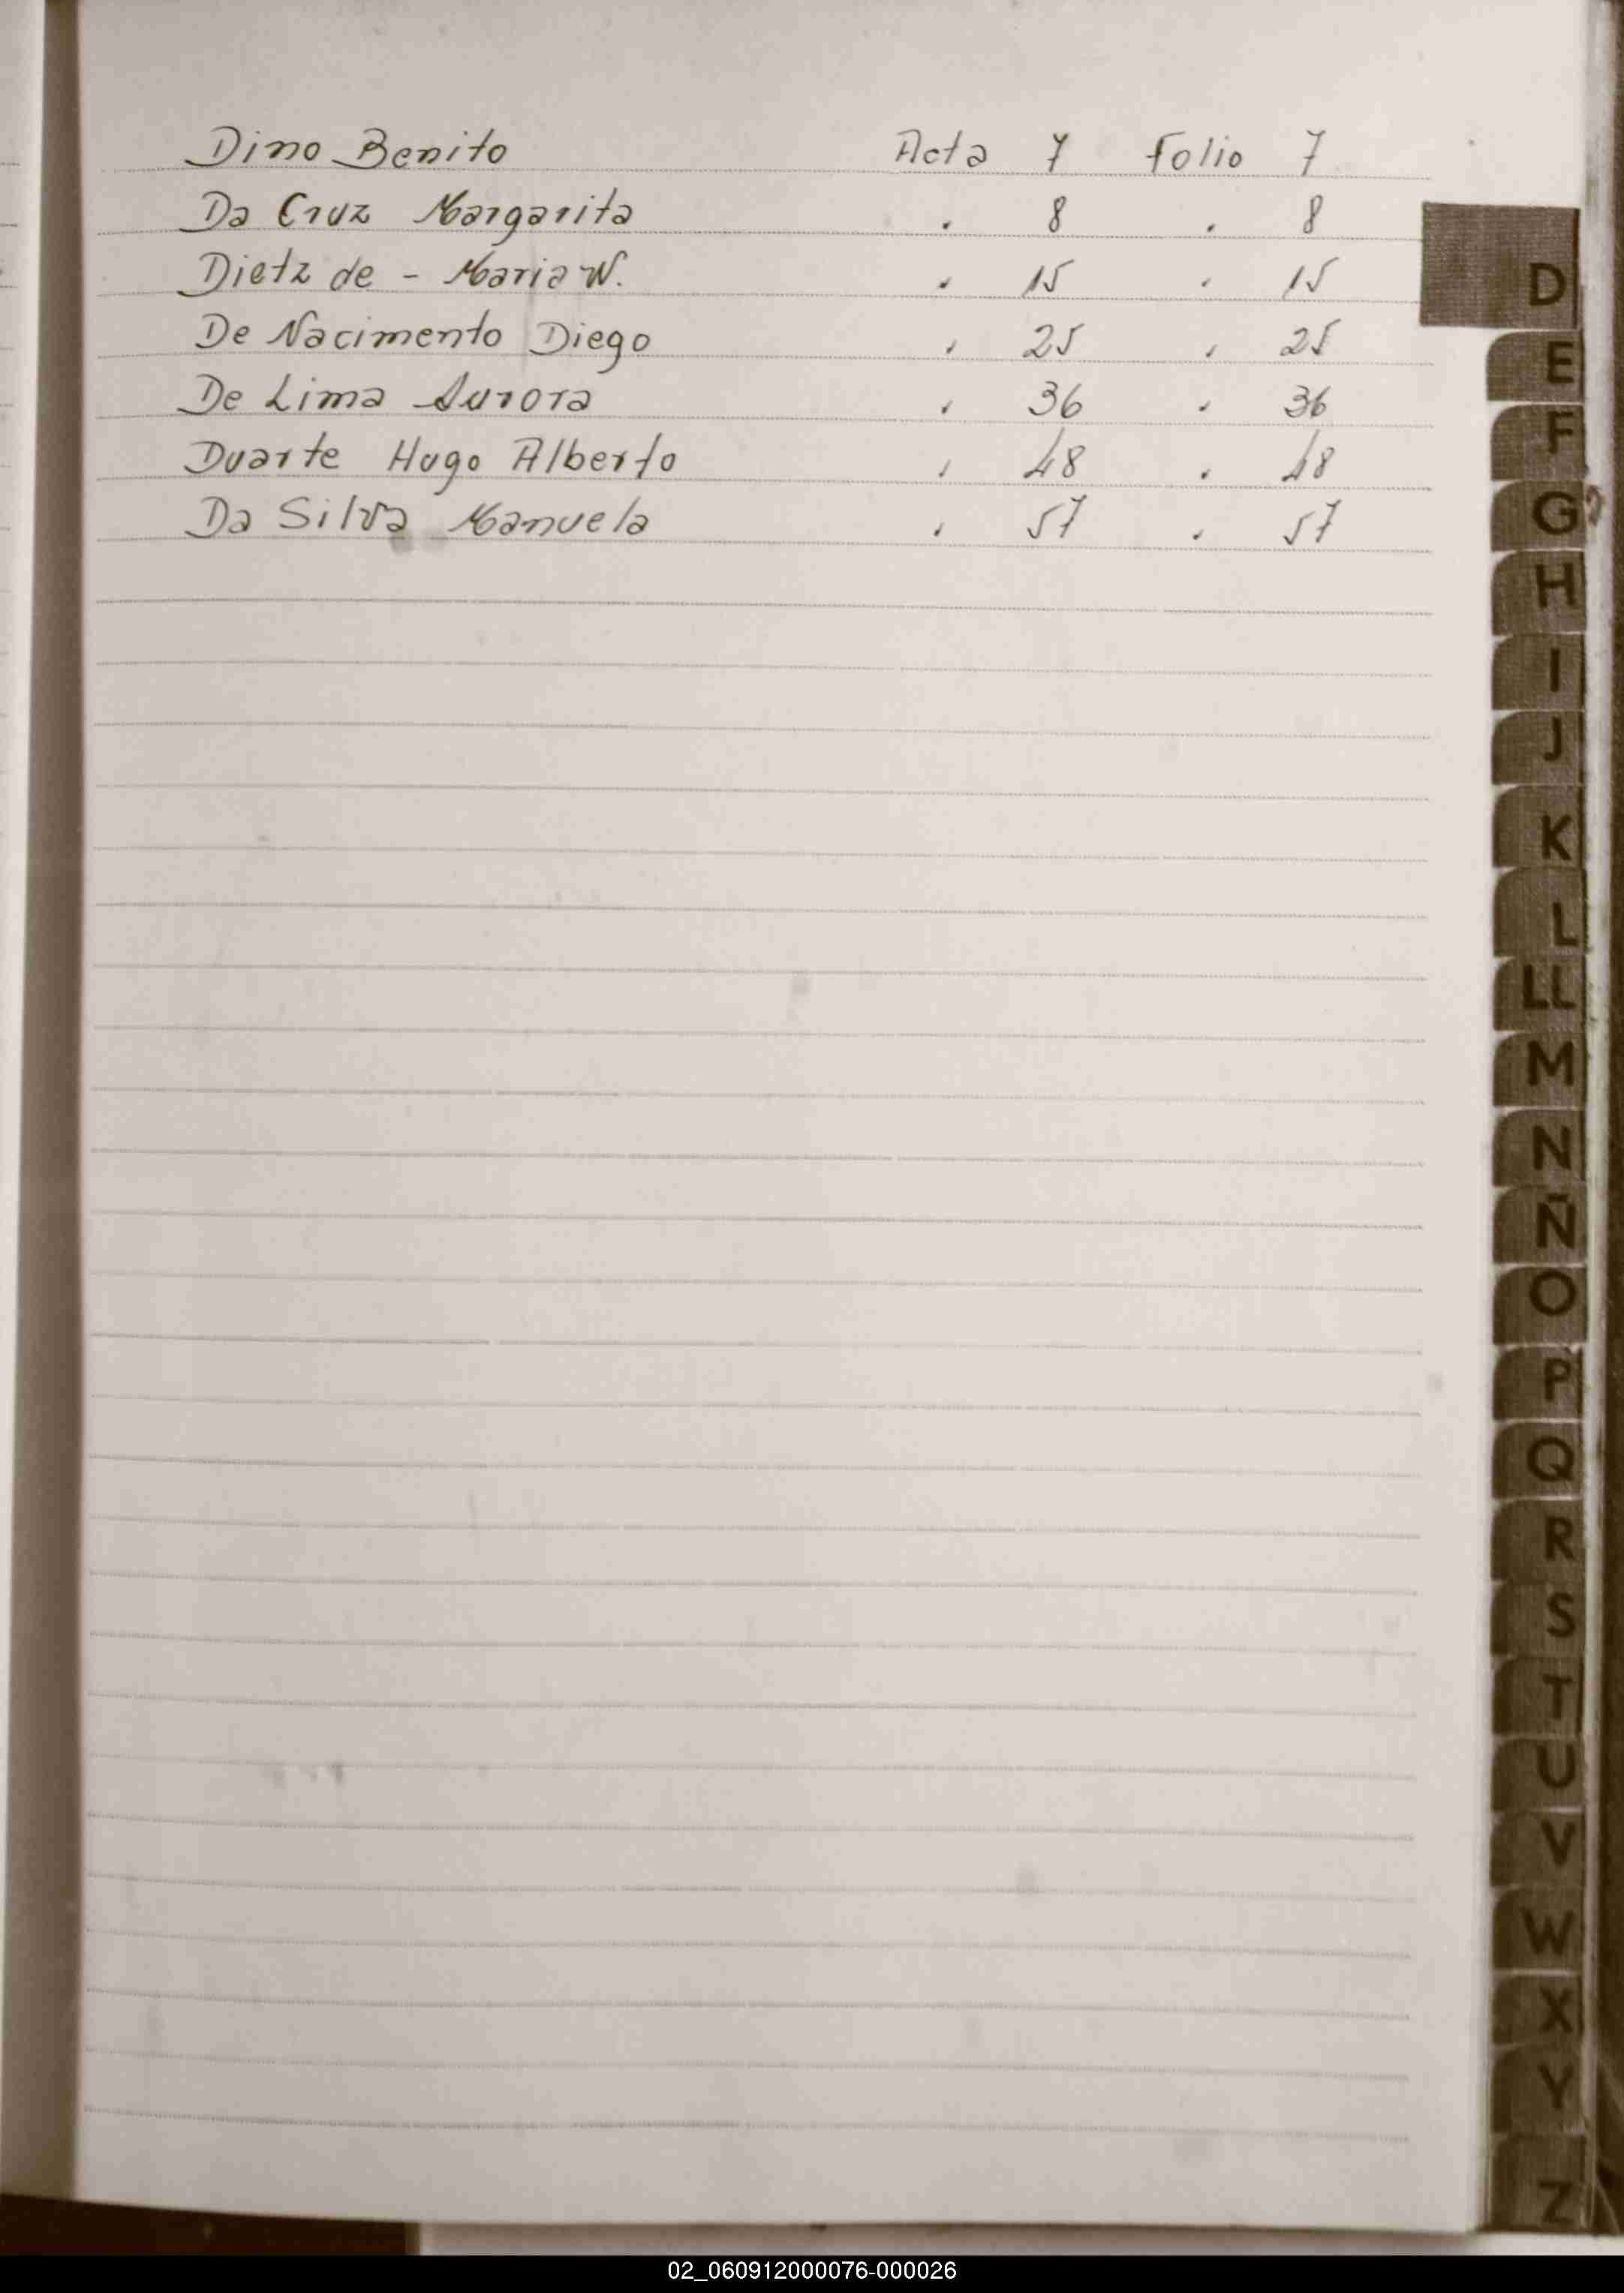 Dino Benito Acta 7 Folio 7
Da Cruz Margarita " 8 " 8
Dietz de - Maria W. " 15 " 15
De Nacimento Diego " 25 " 25
De Lima Aurora " 36 " 36
Duarte Hugo Alberto " 48 " 48
Da Silva Manuela " 57 " 57
D
E
F
G
H
I
J
K
L
LL
M
N
Ñ
O
P
Q
R
S
T
U
V
W
X
Y
Z
02_060912000076-000026